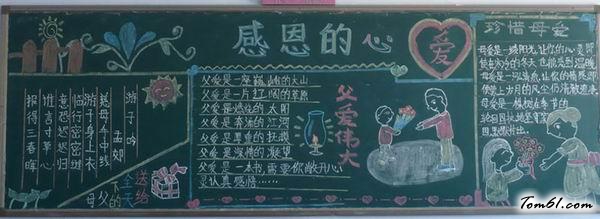 感恩的心
爱
游子吟
孟郊
慈母手中线
游子身上衣
临行密密缝
意恐迟迟归
谁言寸草心
报得三春晖
送给
全天
下的
父母
父爱是一座巍峨的大山
父爱是一片辽阔的草原
父爱是燃烧的太阳
父爱是奔涌的江河
父爱是的抚慰
父爱是深情的凝望
父爱是一本书,需要你敞开心
灵认真感悟……
父爱伟大
珍惜母爱
母爱是一缕阳光,让你的心灵即
使在寒冷的冬天也能感到温暖
母爱是一泓清泉,让你的情感即
使蒙上岁月的风尘仍清澈
母爱是一棵树在季节的
轮回里
Tom61.com